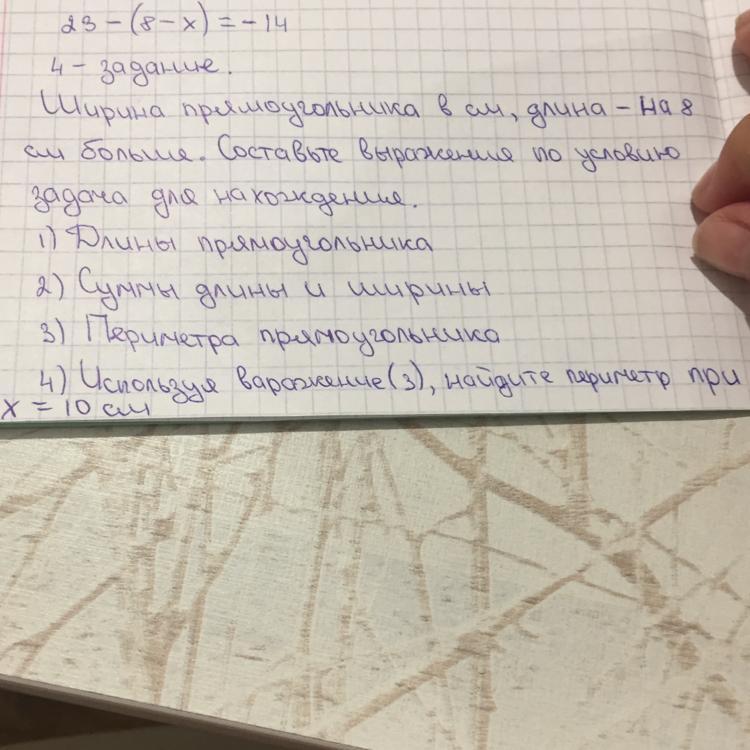 23 - (8 - x) = - 14
4 - задание.
Ширина прямоугольника в см, длина - на 8
см больше. Составьте выражения по условию
задача для нахождения.
1) Длины прямоугольника
2) Суммы длины и ширины
3) Периметра прямоугольника
4) Используя варажение (3), найдите периметр при
x = 10 см